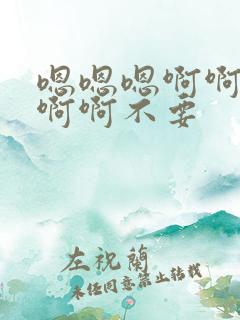 嗯嗯嗯啊啊
啊啊不要
左祝蘭
未经同意禁止转载